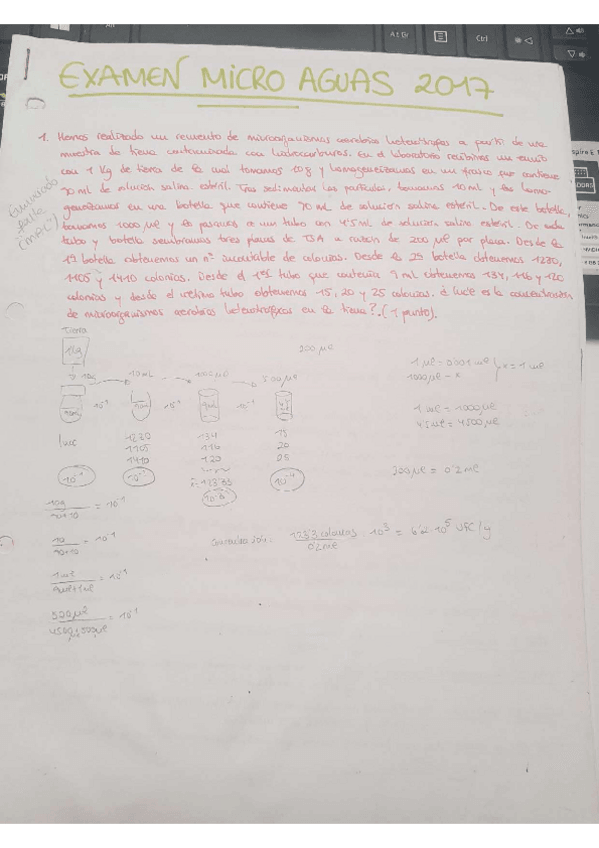 EXAMEN MICRO AGUAS 2017
1. Hemos realizado un recuento de microorganismos aerobios heterótrofos a partir de una
muestra de tierra contaminada con hidrocarburos. En el laboratorio recibimos un envío
con 1 Kg de tierra de la cual tomamos 10g y homogeneizamos en un frasco que contiene
90 ml de solución salina estéril. Tras sedimentar las partículas, tomamos 10 ml y los homo-
geneizamos en una botella que contiene 90 ml de solución salina estéril. De esta botella,
tomamos 1000 µl y lo pasamos a un tubo con 4'5 ml de solución salina estéril. De cada
tubo y botella sembramos tres placas de TSA a razón de 200 µl por placa. Desde la
1ª botella obtenemos un nº incontable de colonias. Desde la 2ª botella obtenemos 1230,
1105 y 1410 colonias. Desde el 1er tubo que contenía 9 ml obtenemos 134, 116 y 120
colonias y desde el último tubo obtenemos 15, 20 y 25 colonias. ¿Cuál es la concentración
de microorganismos aerobios heterotróficos en la tierra?. (1 punto).
Enunciado
falta
(MAL)
Tierra
1Kg
200 µl
10g
10mL
1000 µl
500 µl
10⁻¹
10⁻¹
10⁻¹
1 µl = 0'001 ml
1000 µl = x
x = 1 ml
1 ml = 1000 µl
4'5 ml = 4500 µl
200 µl = 0'2 ml
1230 134 15
1105 116 20
1410 120 25
10⁻¹ 10⁻² 10⁻³ 10⁻⁴
10g / 90+10 = 10⁻¹
10 / 90+10 = 10⁻¹
/ 9ml+1ml = 10⁻¹
500 µl / 4500+500µl = 10⁻¹
123'3 colonias / 0'2 ml · 10³ = 6'2 10⁵ UFC/g
Alt Gr
Ctrl